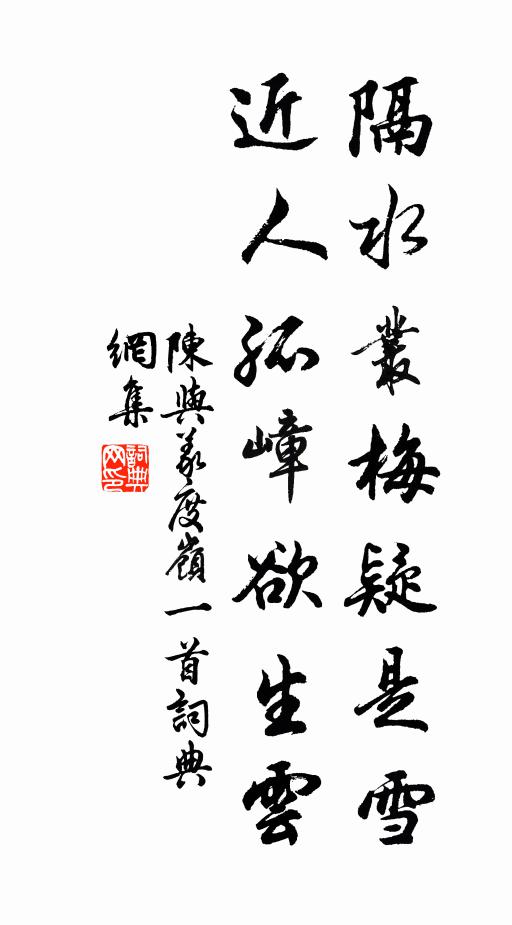 隔水叢梅疑是雪
近人孤嶂欲生雲
陳與義度嶺一首詞典
網集
詞典
网印